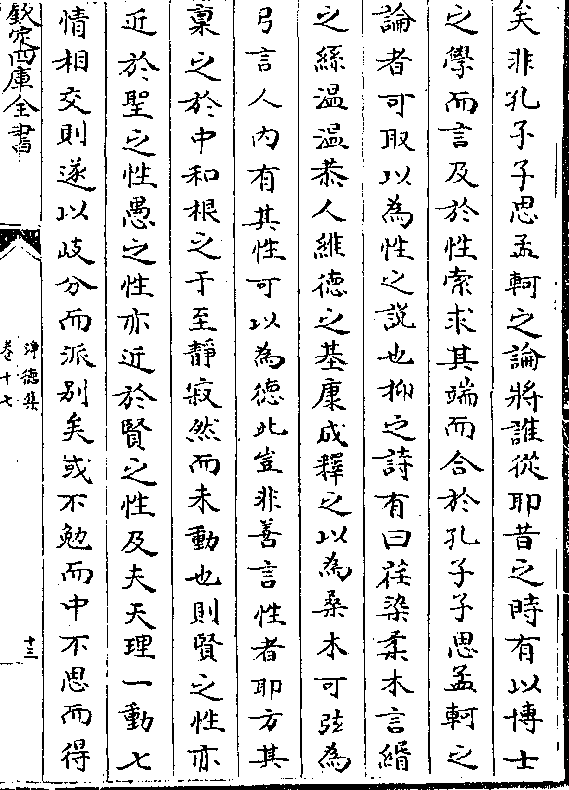 矣非孔子子思孟軻之論將誰從耶昔之時有以博士
之學而言及於性索求其端而合於孔子子思孟軻之
論者可取以為性之説也抑之詩有曰荏染柔木言緡
之絲温温恭人維德之基康成釋之以為桑木可弦為
弓言人内有其性可以為德此豈非善言性者耶方其
稟之於中和根之于至靜寂然而未動也則賢之性亦
近於聖之性愚之性亦近於賢之性及夫天理一動七
情相交則遂以歧分而派别矣或不勉而中不思而得
欽定四庫全書
淨德集
卷十七
十三